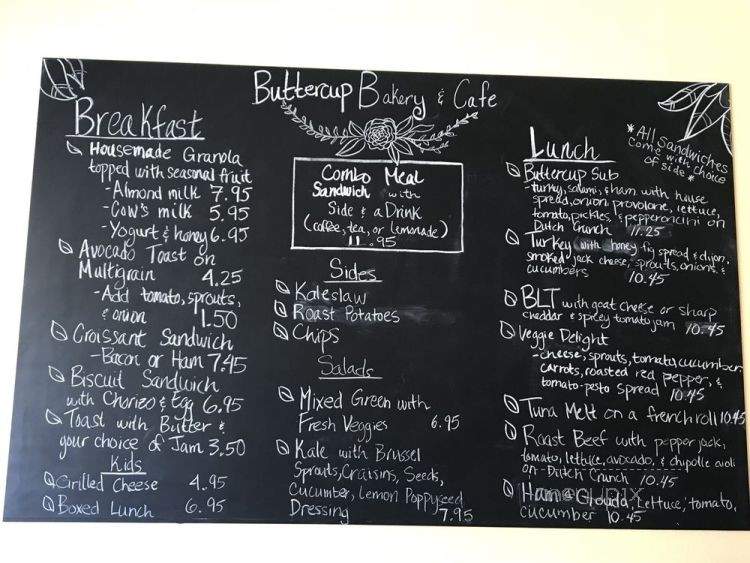 Buttercup Bakery & Cafe
Breakfast
Housemade Granola
topped with seasonal fruit
- Almond milk 7.95
- Cow's milk 5.95
- Yogurt & honey 6.95
Avocado Toast on
Multigrain 4.25
- Add tomato, sprouts,
& onion 1.50
Croissant Sandwich
- Bacon or Ham 7.45
Biscuit Sandwich
with Chorizo & Egg 6.95
Toast with Butter &
your choice of Jam 3.50
Kids
Grilled Cheese 4.95
Boxed Lunch 6.95
Combo Meal
Sandwich with
Side & a Drink
(coffee, tea, or lemonade)
11.95
Sides
Kaleslaw
Roast Potatoes
Chips
Salads
Mixed Green with
Fresh Veggies 6.95
Kale with Brussel
Sprouts, Craisins, Seeds,
Cucumber, Lemon Poppyseed
Dressing 7.95
Lunch
* All Sandwiches
come with choice
of side *
Buttercup Sub
- turkey, salami, & ham with house
spread, onion, provolone, lettuce,
tomato, pickles, & pepperoncini on
Dutch Crunch 11.25
Turkey with honey fig spread & dijon,
smoked jack cheese, sprouts, onions, &
cucumbers 10.45
BLT with goat cheese or sharp
cheddar & spicey tomato jam 10.45
Veggie Delight
- cheese, sprouts, tomato, cucumber,
carrots, roasted red pepper, &
tomato-pesto spread 10.45
Tuna Melt on a french roll 10.45
Roast Beef with pepper jack,
tomato, lettuce, avocado, & chipotle aioli
on Dutch Crunch 10.45
Ham & Gouda, Lettuce, tomato,
cucumber 10.45